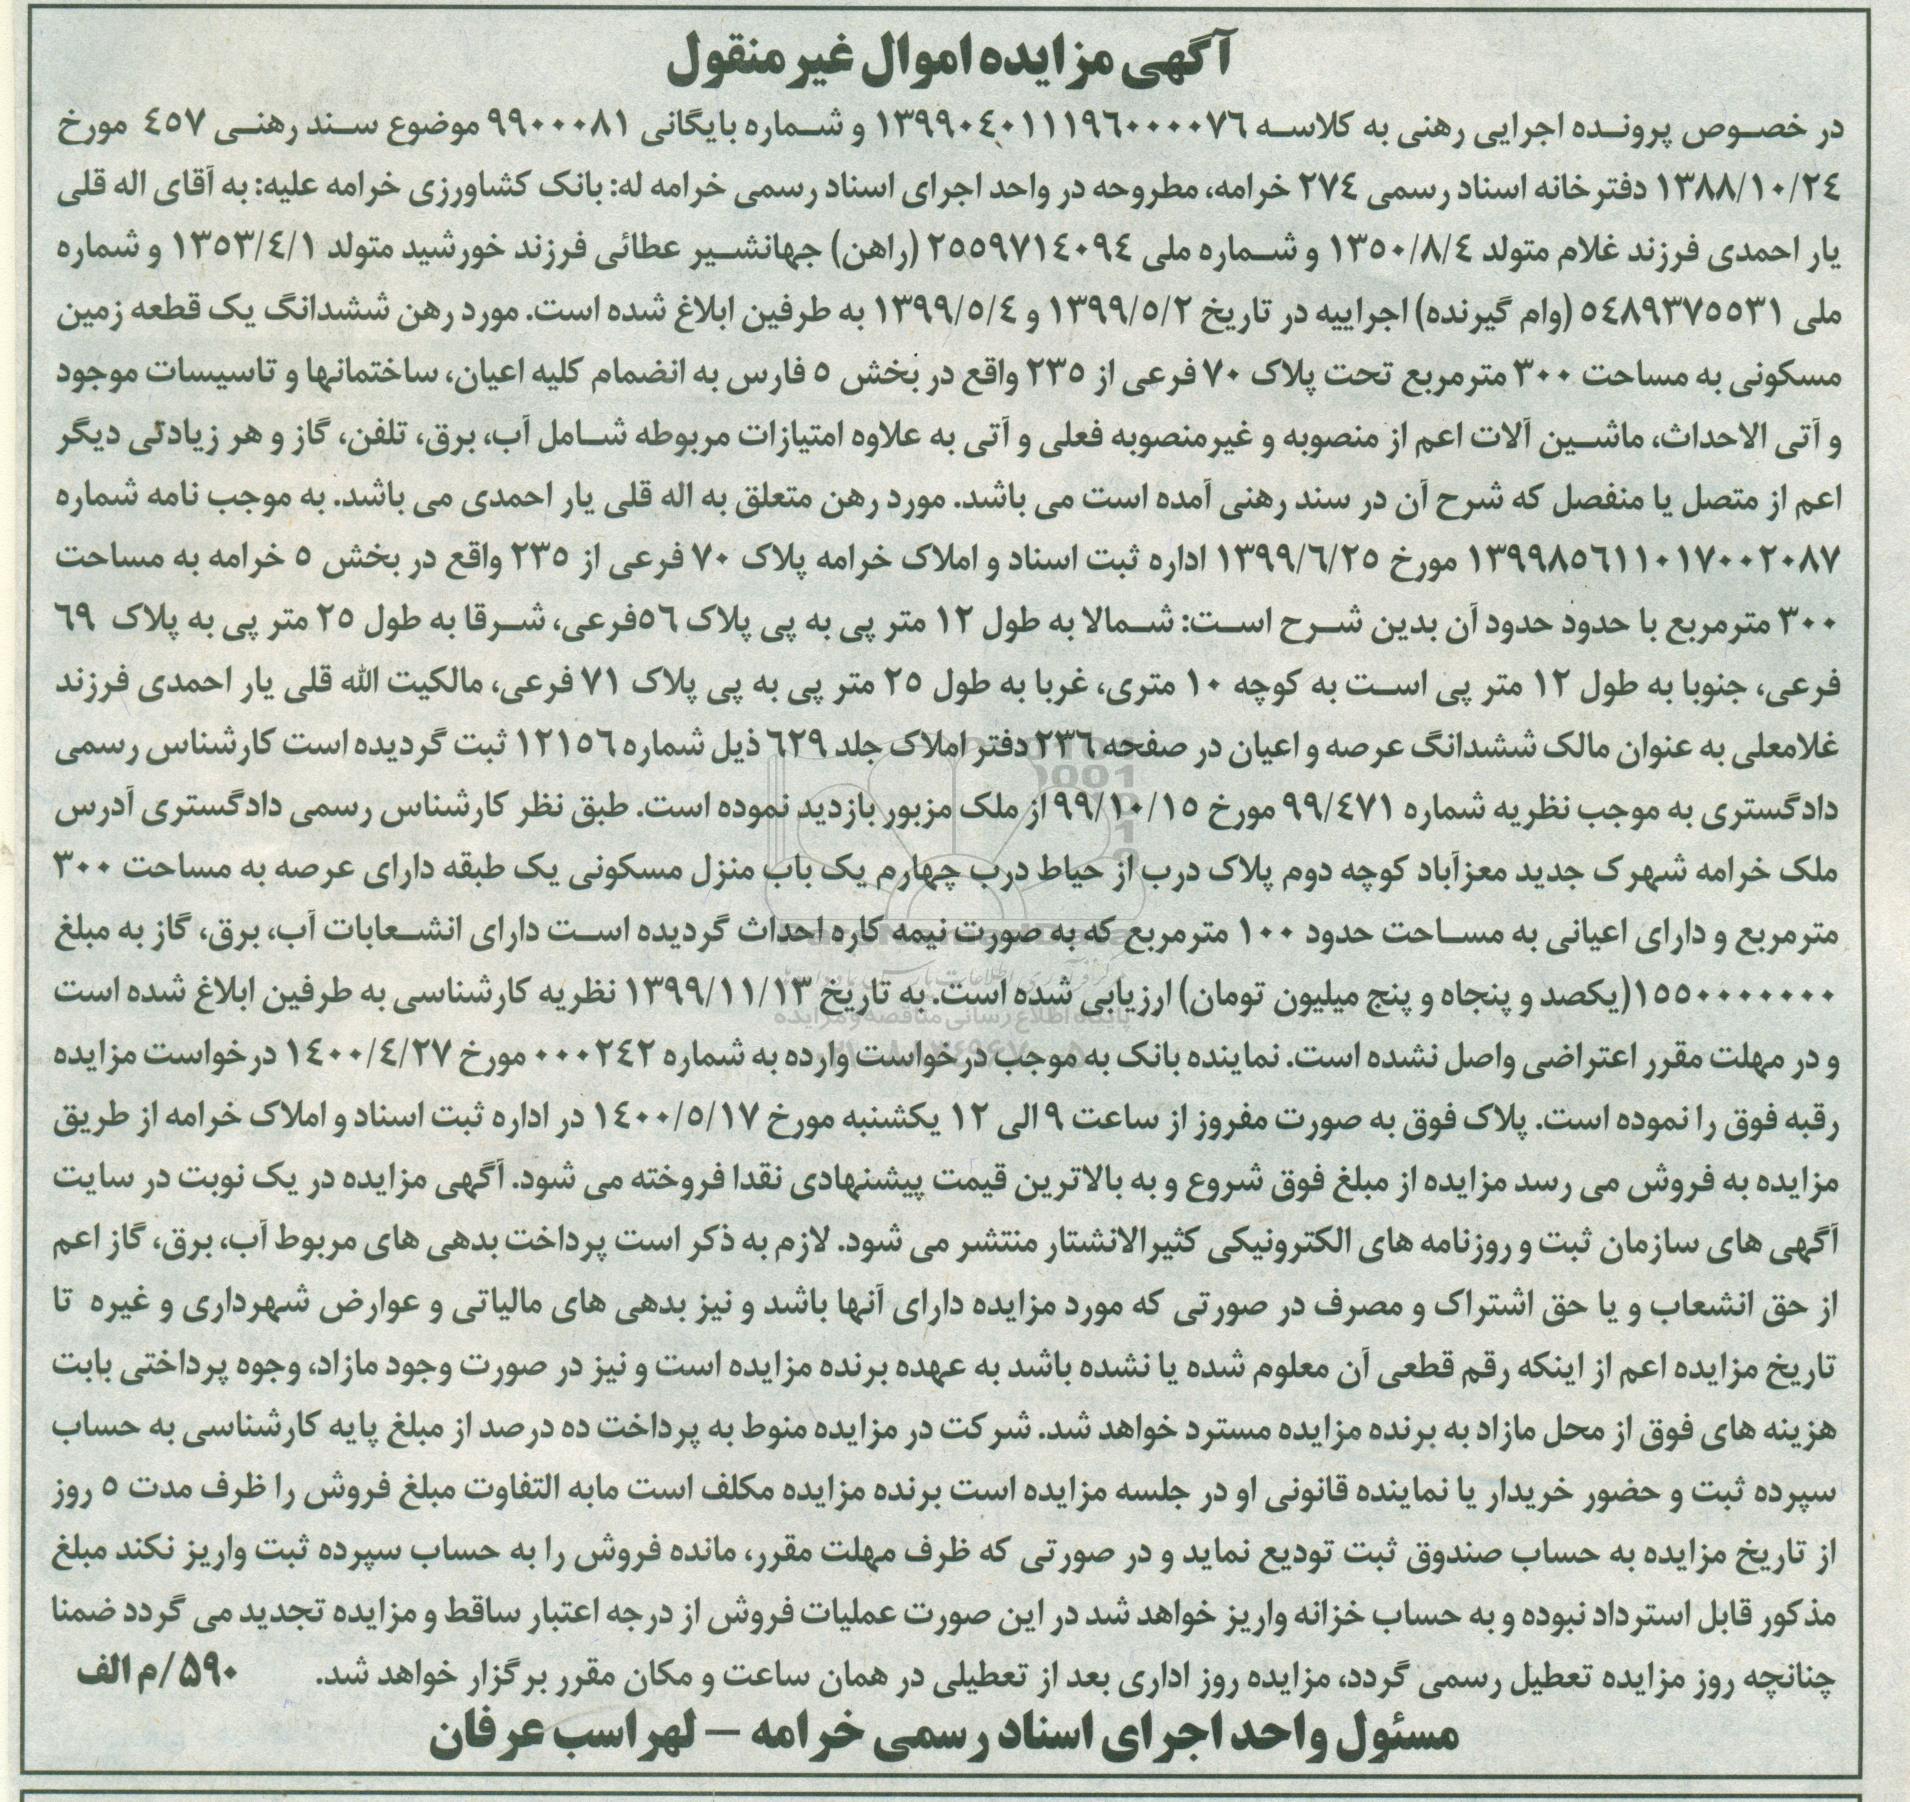 آگهی مزایده اموال غیر منقول
در خصوص پرونده اجرایی رهنی به کلاسه ۱۳۹۹۰۴۰۱۱۱۹۶۰۰۰۰۷۶ و شماره بایگانی ۹۹۰۰۰۸۱ موضوع سند رهنی ۴۵۷ مورخ
۱۳۸۸/۱۰/۲۴ دفترخانه اسناد رسمی ۲۷۴ خرامه، مطروحه در واحد اجرای اسناد رسمی خرامه له: بانک کشاورزی خرامه علیه: به آقای اله قلی
یار احمدی فرزند غلام متولد ۱۳۵۰/۸/۴ و شماره ملی ۲۵۵۹۷۱۴۰۹۴ (راهن) جهانشیر عطائی فرزند خورشید متولد ۱۳۵۳/۴/۱ و شماره
ملی ۵۴۸۹۳۷۵۵۳۱ (وام گیرنده) اجراییه در تاریخ ۱۳۹۹/۵/۲ و ۱۳۹۹/۵/۴ به طرفین ابلاغ شده است. مورد رهن ششدانگ یک قطعه زمین
مسکونی به مساحت ۳۰۰ مترمربع تحت پلاک ۷۰ فرعی از ۲۳۵ واقع در بخش ۵ فارس به انضمام کلیه اعیان، ساختمانها و تاسیسات موجود
و آتی الاحداث، ماشین آلات اعم از منصوبه و غیرمنصوبه فعلی و آتی به علاوه امتیازات مربوطه شامل آب، برق، تلفن، گاز و هر زیادتی دیگر
اعم از متصل یا منفصل که شرح آن در سند رهنی آمده است می باشد. مورد رهن متعلق به اله قلی یار احمدی می باشد. به موجب نامه شماره
۱۳۹۹۸۵۶۱۱۰۱۷۰۰۲۰۸۷ مورخ ۱۳۹۹/۶/۲۵ اداره ثبت اسناد و املاک خرامه پلاک ۷۰ فرعی از ۲۳۵ واقع در بخش ۵ خرامه به مساحت
۳۰۰ مترمربع با حدود حدود آن بدین شرح است: شمالا به طول ۱۲ متر پی به پی پلاک ۵۶فرعی، شرقا به طول ۲۵ متر پی به پلاک ۶۹
فرعی، جنوبا به طول ۱۲ متر پی است به کوچه ۱۰ متری، غربا به طول ۲۵ متر پی به پی پلاک ۷۱ فرعی، مالکیت الله قلی یار احمدی فرزند
غلامعلی به عنوان مالک ششدانگ عرصه و اعیان در صفحه ۲۳۶ دفتر املاک جلد ۶۲۹ ذیل شماره ۱۲۱۵۶ ثبت گردیده است کارشناس رسمی
دادگستری به موجب نظریه شماره ۹۹/۴۷۱ مورخ ۹۹/۱۰/۱۵ از ملک مزبور بازدید نموده است. طبق نظر کارشناس رسمی دادگستری آدرس
ملک خرامه شهرک جدید معزآباد کوچه دوم پلاک درب از حیاط درب چهارم یک باب منزل مسکونی یک طبقه دارای عرصه به مساحت ۳۰۰
مترمربع و دارای اعیانی به مساحت حدود ۱۰۰ مترمربع که به صورت نیمه کاره احداث گردیده است دارای انشعابات آب، برق، گاز به مبلغ
۱۵۵۰۰۰۰۰۰۰(یکصد و پنجاه و پنج میلیون تومان) ارزیابی شده است. به تاریخ ۱۳۹۹/۱۱/۱۳ نظریه کارشناسی به طرفین ابلاغ شده است
و در مهلت مقرر اعتراضی واصل نشده است. نماینده بانک به موجب درخواست وارده به شماره ۰۰۰۲۴۲ مورخ ۱۴۰۰/۴/۲۷ درخواست مزایده
رقبه فوق را نموده است. پلاک فوق به صورت مفروز از ساعت ۹ الی ۱۲ یکشنبه مورخ ۱۴۰۰/۵/۱۷ در اداره ثبت اسناد و املاک خرامه از طریق
مزایده به فروش می رسد مزایده از مبلغ فوق شروع و به بالاترین قیمت پیشنهادی نقدا فروخته می شود. آگهی مزایده در یک نوبت در سایت
آگهی های سازمان ثبت و روزنامه های الکترونیکی کثیرالانشتار منتشر می شود. لازم به ذکر است پرداخت بدهی های مربوط آب، برق، گاز اعم
از حق انشعاب و یا حق اشتراک و مصرف در صورتی که مورد مزایده دارای آنها باشد و نیز بدهی های مالیاتی و عوارض شهرداری و غیره تا
تاریخ مزایده اعم از اینکه رقم قطعی آن معلوم شده یا نشده باشد به عهده برنده مزایده است و نیز در صورت وجود مازاد، وجوه پرداختی بابت
هزینه های فوق از محل مازاد به برنده مزایده مسترد خواهد شد. شرکت در مزایده منوط به پرداخت ده درصد از مبلغ پایه کارشناسی به حساب
سپرده ثبت و حضور خریدار یا نماینده قانونی او در جلسه مزایده است برنده مزایده مکلف است مابه التفاوت مبلغ فروش را ظرف مدت ۵ روز
از تاریخ مزایده به حساب صندوق ثبت تودیع نماید و در صورتی که ظرف مهلت مقرر، مانده فروش را به حساب سپرده ثبت واریز نکند مبلغ
مذکور قابل استرداد نبوده و به حساب خزانه واریز خواهد شد در این صورت عملیات فروش از درجه اعتبار ساقط و مزایده تجدید می گردد ضمنا
چنانچه روز مزایده تعطیل رسمی گردد، مزایده روز اداری بعد از تعطیلی در همان ساعت و مکان مقرر برگزار خواهد شد. ۵۹۰/م الف
مسئول واحد اجرای اسناد رسمی خرامه – لهراسب عرفان